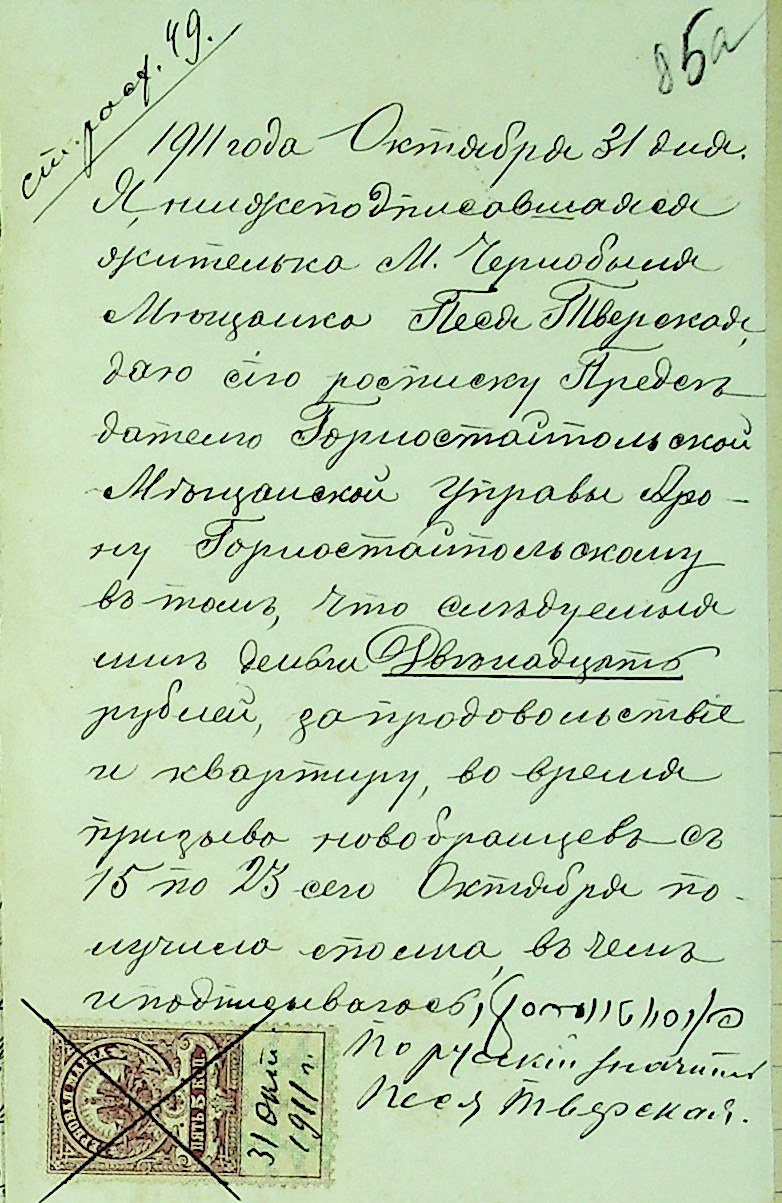 ст. расх. 49.
85а
1911 года Октября 31 дня.
Я, нижеподписавшаяся
жителька М. Чернобыля
Мѣщанка Песя Тверская,
даю сію росписку Предсѣ
дателю Горностайпольской
Мѣщанской Управы Аро-
ну Горностайпольскому
въ томъ, что слѣдуемыя
мнѣ деньги Двѣнадцать
рублей, за продовольствіе
и квартиру, во время
призыва новобранцевъ съ
15 по 23 сего Октября по-
лучила сполна, въ чемъ
и подписываюсь,
По русски значитъ
Песя Тверская.
ПЯТЬ 5 КОП.
31 Окт
1911 г.